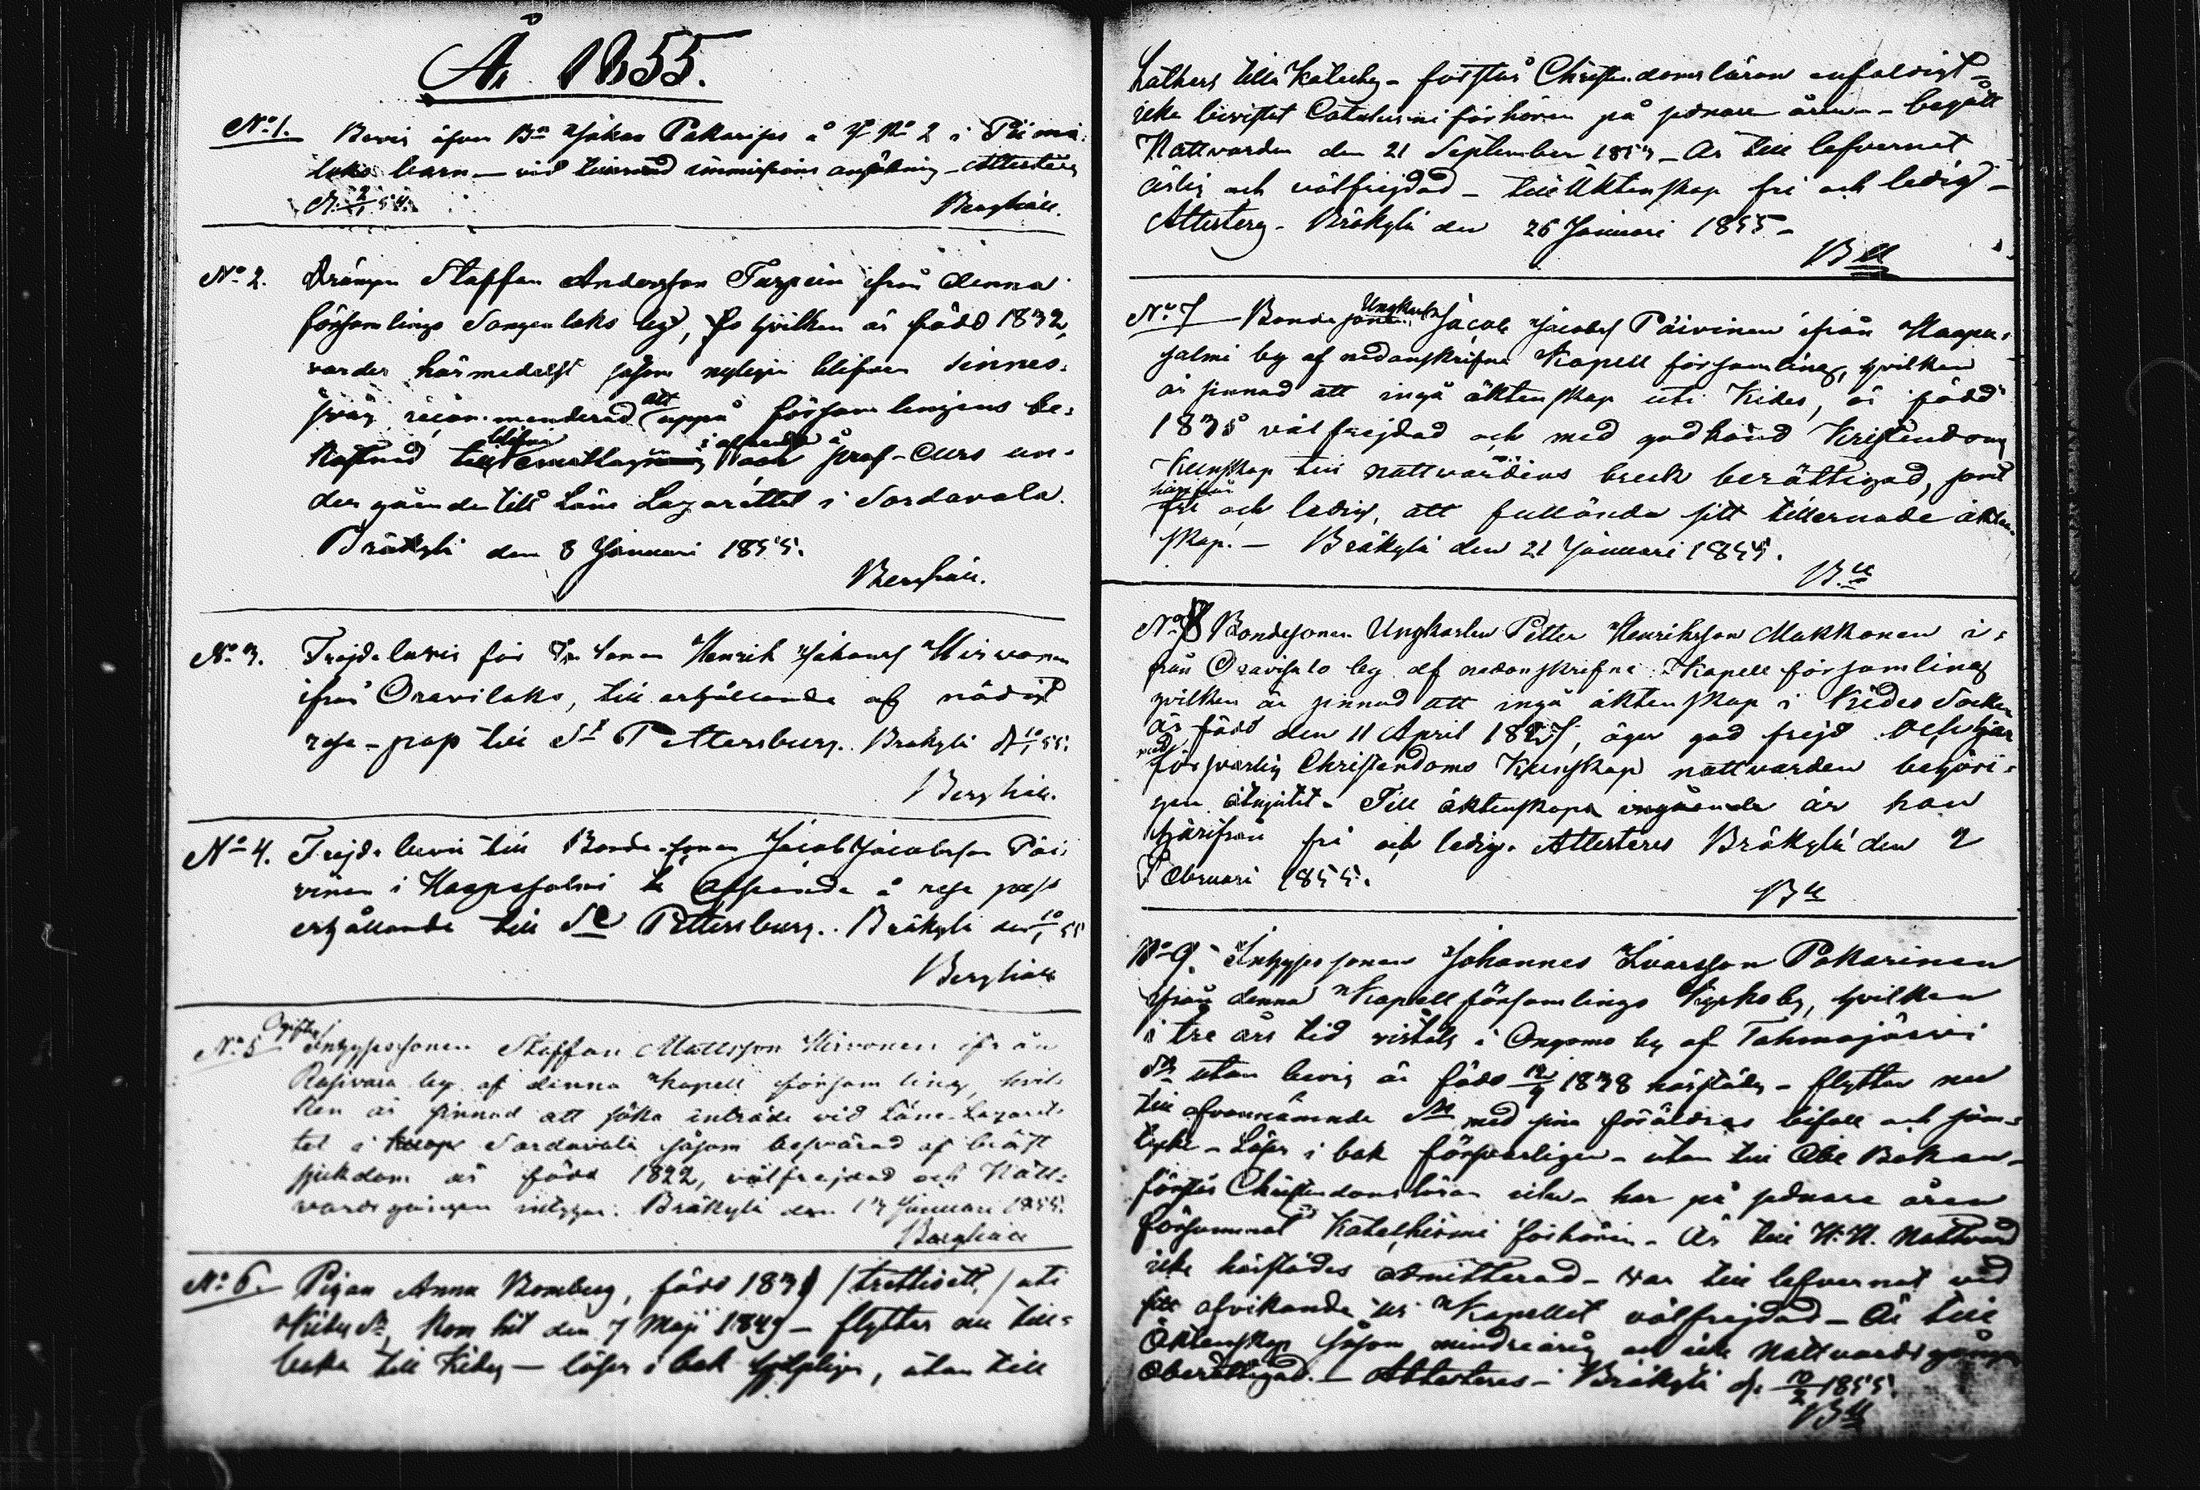 År 1855.
No 1. Bevis öfver Bn Johan Pakarises å No 2 i Päiwä-
laks barn – vid immissions ansökning – Attesteras
Berghäll.
No 2. Drängen Staffan Andersson Turpein ifrån denna
församlings Sangenlaks by, hvilken är född 1832,
varder härmedelst såsom nyligen blifven sinnes-
svag recommenderad att uppå församlingens be-
kostnad till blifva emottagen i afseende å och prof-Curs un-
der gående till Läns Lazarettet i Sordavala.
Bräkylä den 8 Januari 1855.
Berghäll.
No 3. Frejdebevis för Henrik Johansf Hirvonen
ifrån Oravilaks, till erhållande af nödigt
rese-pass till St Pettersburg. Bräkylä d 10/1 55.
Berghäll.
No 4. Frejde bevis till Bonde sonen Jacob Jacobsson Päi-
vinen i Haapasalmi afseende å rese pass
erhållande till St Pettersburg. Bräkylä den 10/1 55
Berghäll
No 5 Ogifte Inhyses sonen Staffan Mattsson Hirvonen ifrån
Rasivara by af denna Kapell församling, hvil-
ken är sinnad att söka inträde vid Läns Lazaret-
tet i Sordavala såsom besvärad af
sjukdom är född 1822, välfrejdad och Natt-
vardsgången Bräkylä den 17 Januari 1855.
Berghäll
No 6. Pigan Anna Bomberg, född 1831 / trettioett / uti
Kides Sn, kom hit den 7 Maji 1849 – flyttar nu till-
baka till Kides – läser i bok hjelpligen, utan till
Luthers lilla Kateches – förstår Christendomsläran enfaldigt –
icke bevistat Catechismi förhören på sednare åren – begått
Nattvarden den 21 September 1853 – Är till lefvernet
ärlig och välfrejdad – till Äktenskap fri och ledig –
Attesteras. Bräkylä den 26 Januari 1855 –
Bll
No 7 Bondesonen Ungkarlen Jacob Jacobsf Päivinen ifrån Haapa-
salmi by af nedanskrifne Kapell församling, hvilken
är sinnad att ingå äktenskap uti Kides, är född
1835 välfrejdad och med godkänd Kristendoms
Kunskap till nattvardens bruk berättigad, samt
härifrån fri och ledig, att fullända sitt tillernade äkten-
skap. – Bräkylä den 21 Januari 1855.
Bll
No 8 Bondesonen Ungkarlen Petter Henriksson Makkonen i-
från Oravisalo by af nedanskrifne Kapell församling
hvilken är sinnad att ingå äktenskap i Kides Socken
är född den 11 April 1827, äger god frejd och har
med försvarlig Christendoms Kunskap nattvarden behöri-
gen åtnjutit. Till äktenskaps ingående är han
härifrån fri och ledig. Attesteres Bräkylä den 2
Februari 1855.
Bll
No 9. Inhyses sonen Johannes Ivarsson Pakarinen
ifrån denna Kapellförsamlings by, hvilken
i tre års tid vistats i Onkamo by af Tohmajärvi
Sn utan bevis är född 1838 härstädes – flyttar nu
till ofvannämnde Sn med sina föräldrars bifall och sam-
tycke – Läser i bok försvarligen – utan till Abc Bokan –
förstår Christendomsläran icke – har på sednare åren
försummat Katechismi förhören – Är till H. H. Nattvard
icke härstädes admitterad – var till lefvernet vid
sitt afvikande ur Kapellet välfrejdad – Är till
Äktenskap såsom minderårig och icke Nattvardsgången
oberättigad. – Attesteres – Bräkylä d. 10/2 1855.
Bll